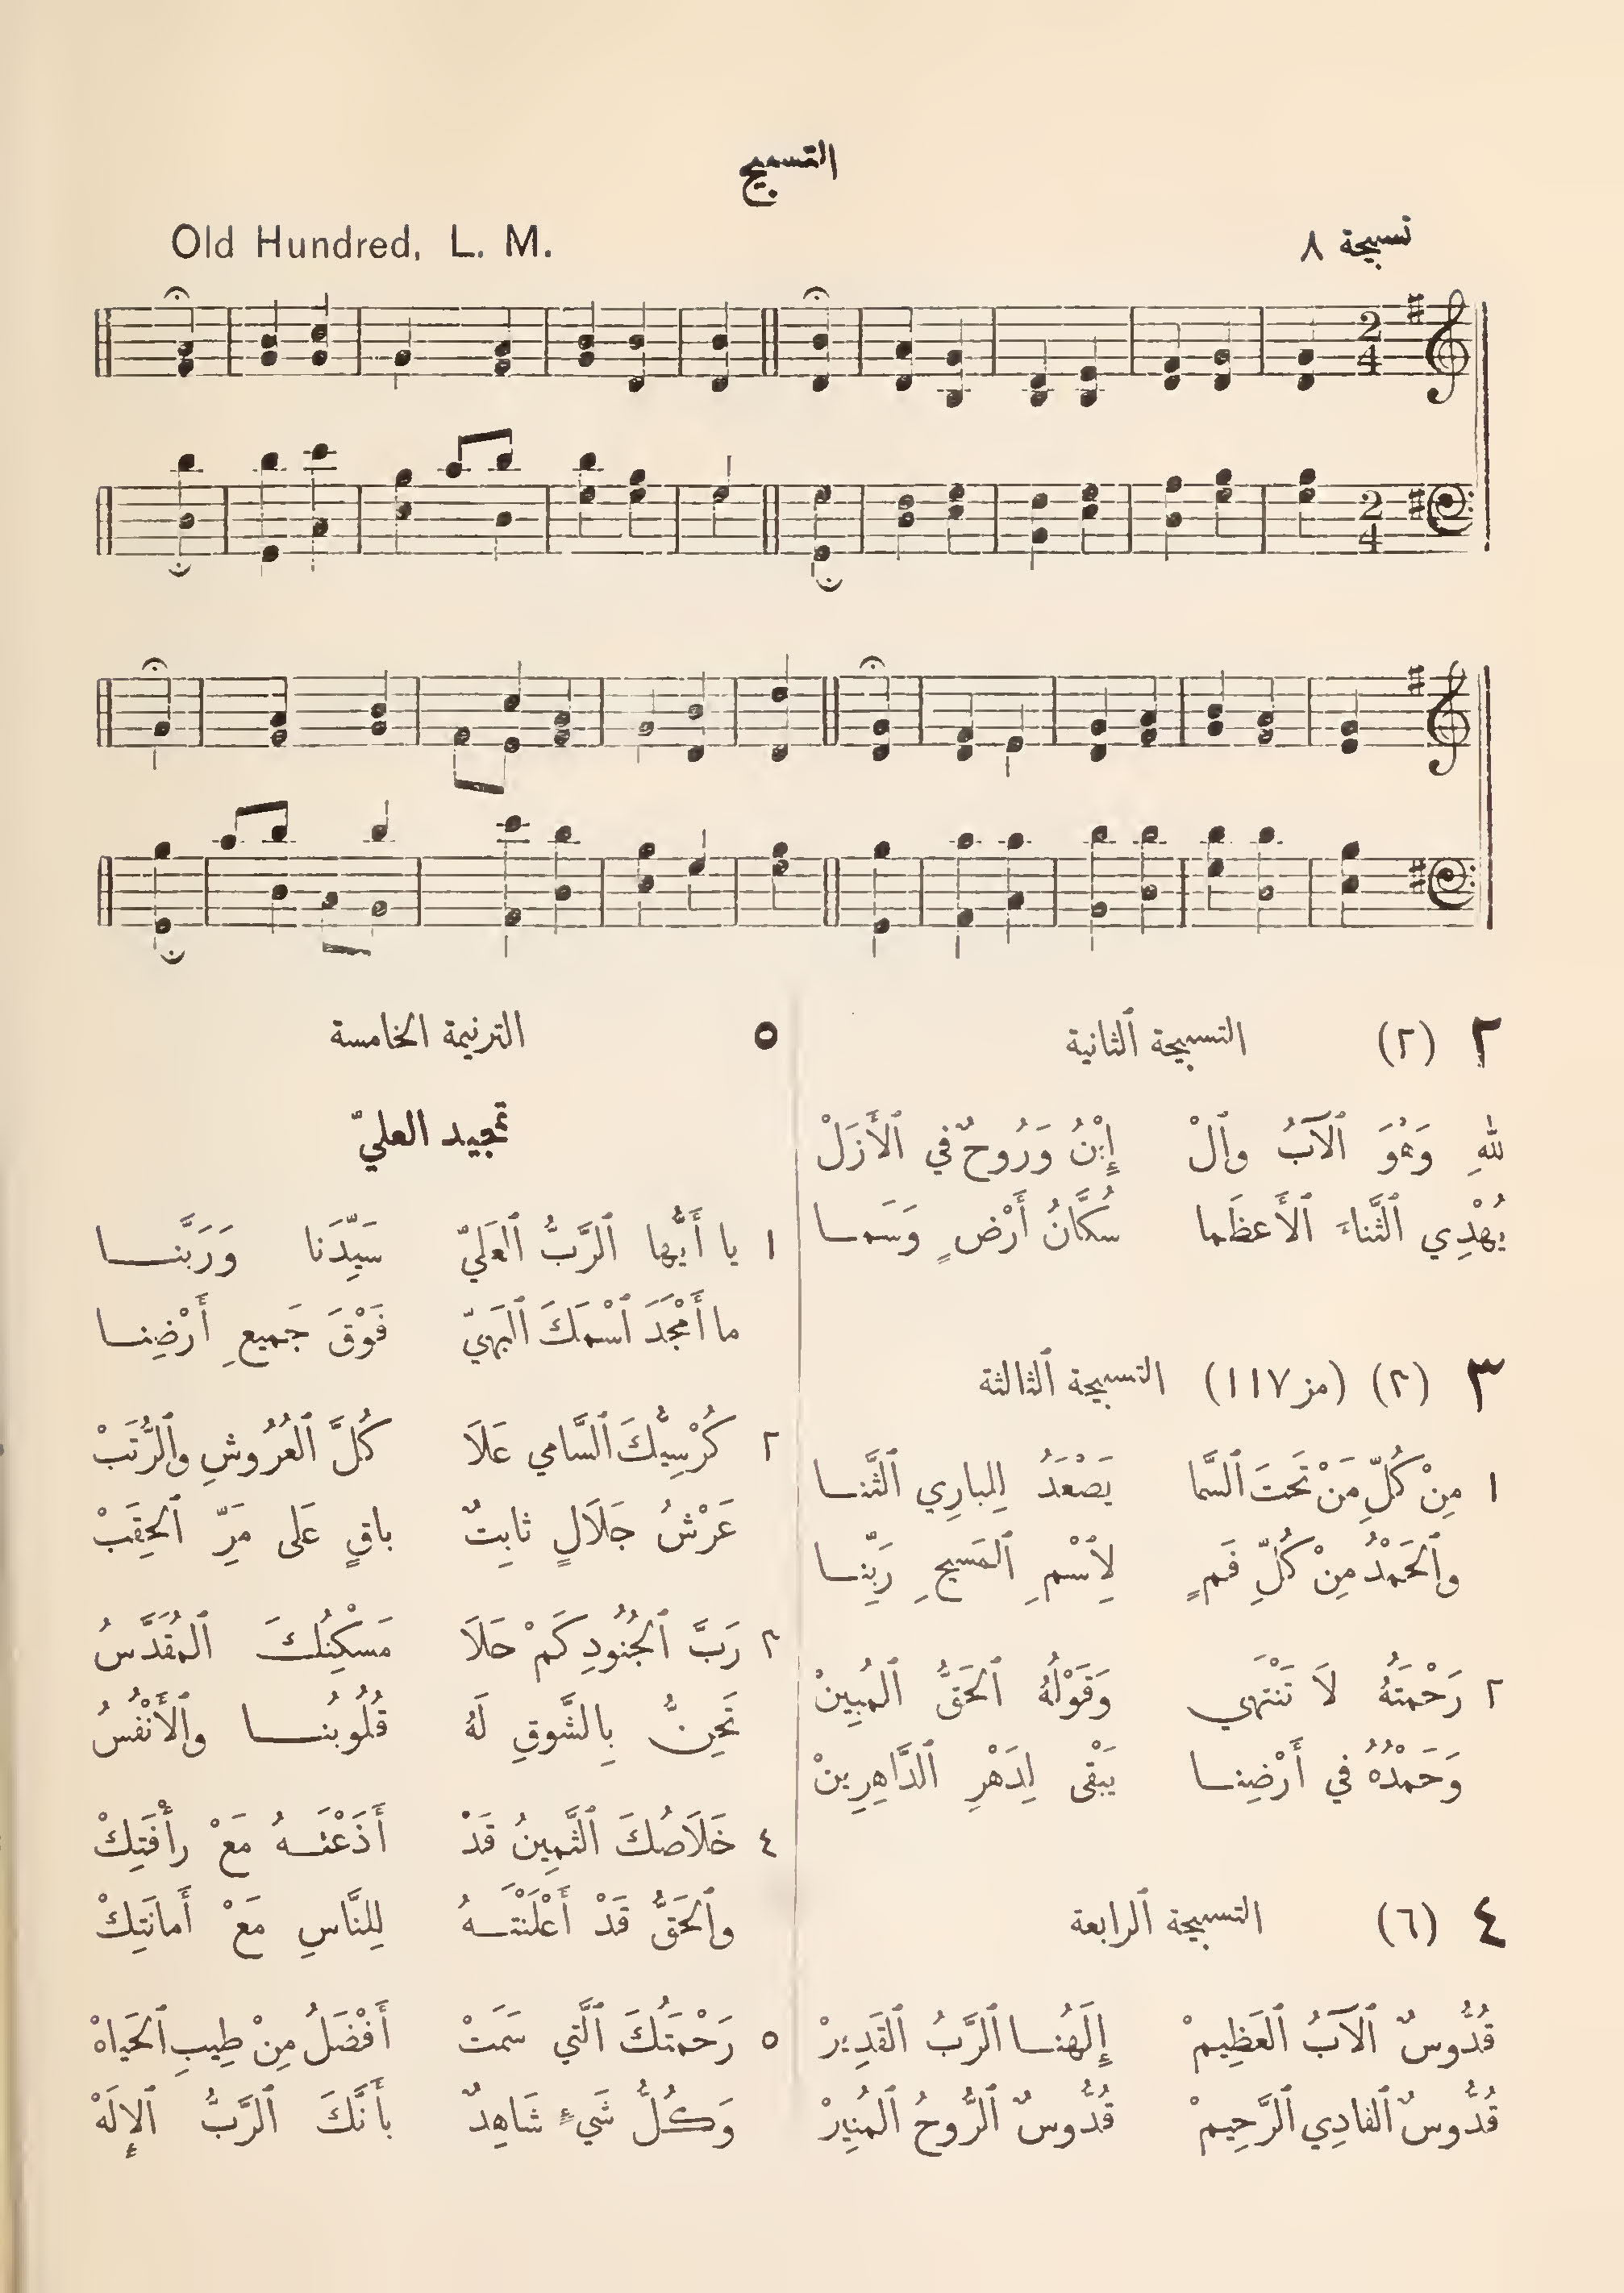 التسبيح
تسبيحة ٨
Old Hundred, L. M.
٢ (٢) التسبيحة ٱلثانية
للهِ وَهْوَ ٱلآبُ وٱلْ إِبْنُ وَرُوحٌ في ٱلأَزَلْ
يُهْدِي ٱلثَّناءَ ٱلأَعظَما سُكَّانُ أَرْضٍ وَسَمـا
٣ (٢) (مز ١١٧) التسبيحة ٱلثالثة
١ مِنْ كُلِّ مَنْ تَحتَ ٱلسَّما يَصْعَدُ لِلبارِي ٱلثَّنـا
وٱلحَمْدُ مِنْ كُلِّ فَمٍ لِٱسْمِ ٱلمَسيحِ رَبِّنـا
٢ رَحْمَتُهُ لاَ تَنْتَهي وَقَوْلُهُ ٱلحَقُّ ٱلمُبِينْ
وَحَمْدُهُ في أَرْضِنـا يَبْقى لِدَهْرِ ٱلدَّاهِرِينْ
٤ (٦) التسبيحة ٱلرابعة
قُدُّوسٌ ٱلآبُ ٱلعَظِيمْ إِلَهُنـا ٱلرَّبُ ٱلقَدِيرْ
قُدُّوسٌ ٱلفادِي ٱلرَّحِيمْ قُدُّوسٌ ٱلرُّوحُ ٱلمُنِيرْ
٥ الترنيمة الخامسة
تمجيد العليّ
١ يا أَيُّها ٱلرَّبُّ ٱلعَلَيّ سَيِّدَنا وَرَبَّنـــا
ما أَمْجَدَ ٱسْمَكَ ٱلبَهيّ فَوْقَ جَميعِ أَرْضِنـا
٢ كُرْسِيُّكَ ٱلسَّامي عَلاَ كُلَّ ٱلعُرُوشِ وٱلرُّتَبْ
عَرْشُ جَلاَلٍ ثابِتٌ باقٍ عَلى مَرِّ ٱلحِقَبْ
٣ رَبَّ ٱلجُنُودِ كَمْ حَلاَ مَسْكِنُكَ ٱلمُقَدَّسُ
تَحِنُّ بِالشَّوقِ لَهُ قُلُوبُنـــا وٱلأَنْفُسُ
٤ خَلاَصُكَ ٱلثَّمِينُ قَدْ أَذَعْتَـهُ مَعْ رأْفَتِكْ
وٱلحَقُّ قَدْ أَعْلَنْتَـهُ لِلنَّاسِ مَعْ أَمانَتِكْ
٥ رَحْمَتُكَ ٱلَّتي سَمَتْ أَفْضَلُ مِنْ طِيبِ ٱلحَياهْ
وَكُلُّ شَيءٍ شَاهِدٌ بأَنَّكَ ٱلرَّبُّ ٱلإِلَهْ